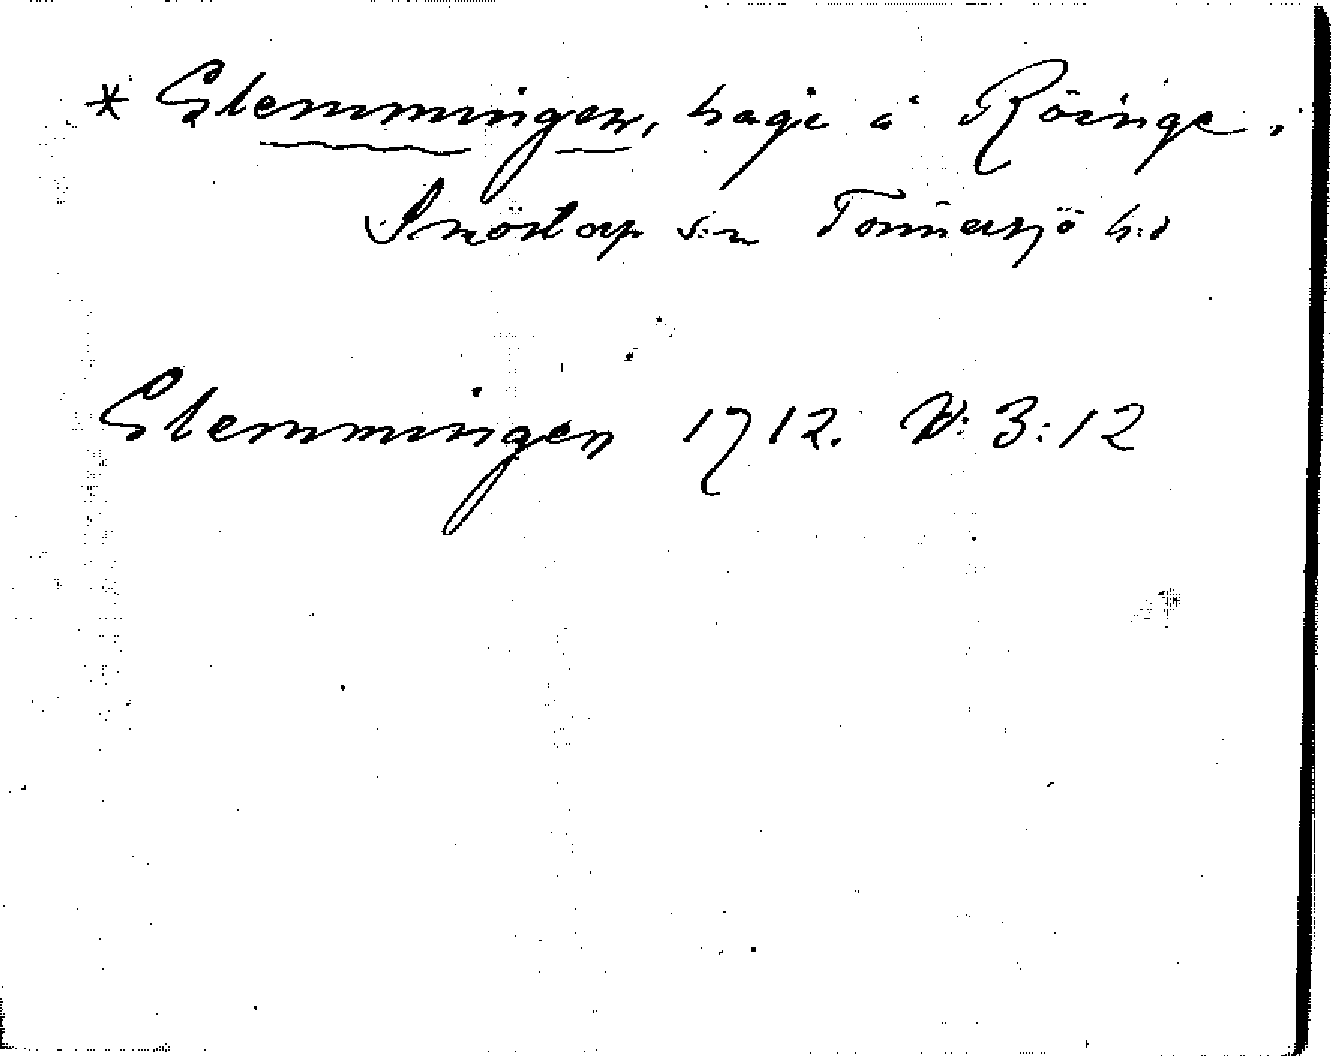 * Slemmingen, hage å Röinge,
Snöstorp s:n Tönnersjö h:d
Slemmingen 1712. V: 3:12